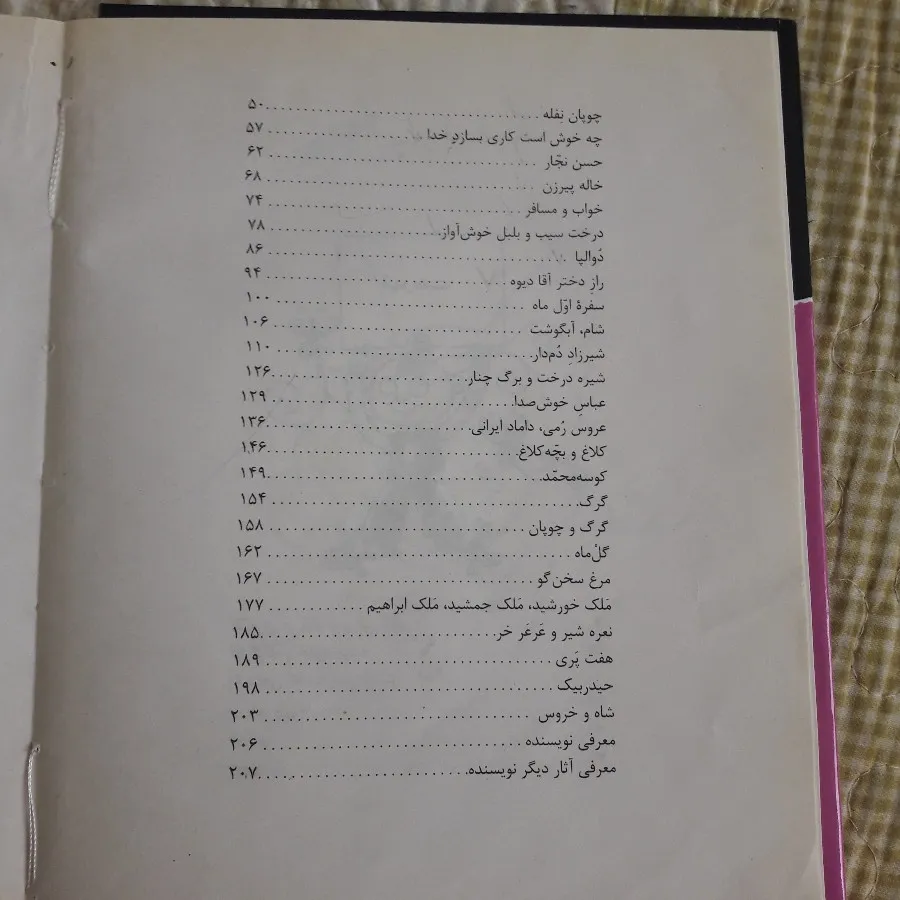 چوپان نِفله ........ ۵۰
چه خوش است کاری بسازدِ خدا ........ ۵۷
حسن نجّار ........ ۶۲
خاله پیرزن ........ ۶۸
خواب و مسافر ........ ۷۴
درخت سیب و بلبل خوش‌آواز ........ ۷۸
دُوالپا ........ ۸۶
رازِ دختر آقا دیوه ........ ۹۴
سفرهٔ اوّل ماه ........ ۱۰۰
شام، آبگوشت ........ ۱۰۶
شیرزادِ دُم‌دار ........ ۱۱۰
شیره درخت و برگ چنار ........ ۱۲۶
عباسِ خوش‌صدا ........ ۱۲۹
عروس رُمی، داماد ایرانی ........ ۱۳۶
کلاغ و بچّه‌کلاغ ........ ۱۴۶
کوسه‌محمّد ........ ۱۴۹
گرگ ........ ۱۵۴
گرگ و چوپان ........ ۱۵۸
گلْ‌ماه ........ ۱۶۲
مرغ سخن‌گو ........ ۱۶۷
مَلک خورشید، مَلک جمشید، مَلک ابراهیم ........ ۱۷۷
نعره شیر و عَرعَر خر ........ ۱۸۵
هفت پَری ........ ۱۸۹
حیدربیک ........ ۱۹۸
شاه و خروس ........ ۲۰۳
معرفی نویسنده ........ ۲۰۶
معرفی آثار دیگر نویسنده ........ ۲۰۷